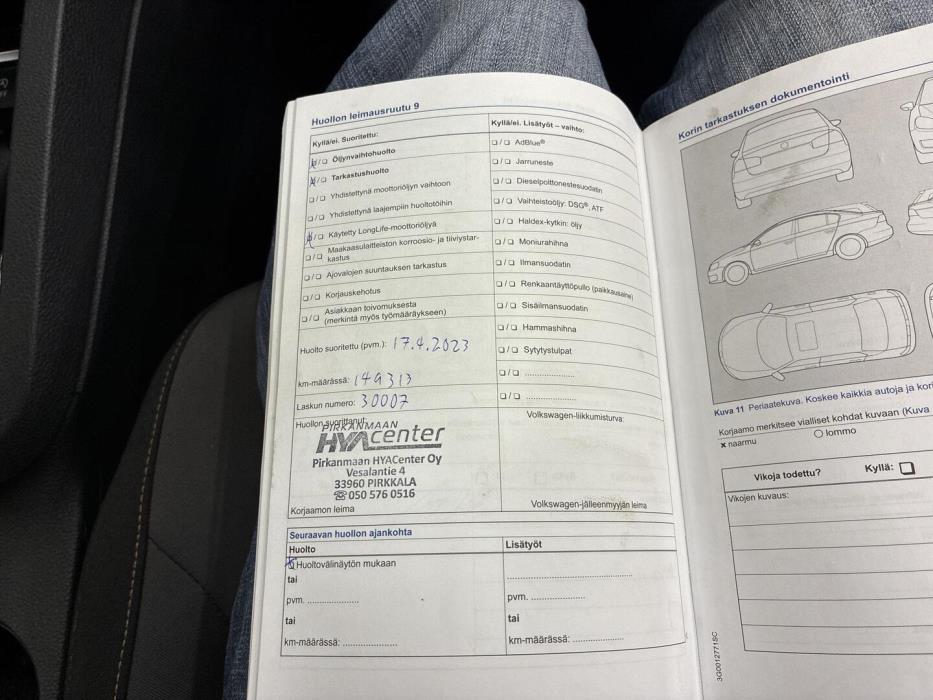 Huollon leimausruutu 9
Kyllä/ei. Suoritettu:
☒/❑ Öljynvaihtohuolto
☒/❑ Tarkastushuolto
❑/❑ Yhdistettynä moottoriöljyn vaihtoon
❑/❑ Yhdistettynä laajempiin huoltotöihin
☒/❑ Käytetty LongLife-moottoriöljyä
❑/❑ Maakaasulaitteiston korroosio- ja tiiviystar-
kastus
❑/❑ Ajovalojen suuntauksen tarkastus
❑/❑ Korjauskehotus
❑/❑ Asiakkaan toivomuksesta
(merkintä myös työmääräykseen)
Kyllä/ei. Lisätyöt – vaihto:
❑/❑ AdBlue®
❑/❑ Jarruneste
❑/❑ Dieselpolttonestesuodatin
❑/❑ Vaihteistoöljy: DSG®, ATF
❑/❑ Haldex-kytkin: öljy
❑/❑ Moniurahihna
❑/❑ Ilmansuodatin
❑/❑ Renkaantäyttöpullo (paikkausaine)
❑/❑ Sisäilmansuodatin
❑/❑ Hammashihna
❑/❑ Sytytystulpat
❑/❑ ....................
❑/❑ ....................
Huolto suoritettu (pvm.): 17.4.2023
km-määrässä: 149313
Laskun numero: 30007
Huollon suorittanut:
PIRKANMAAN
HYAcenter
Pirkanmaan HYACenter Oy
Vesalantie 4
33960 PIRKKALA
☎050 576 0516
Korjaamon leima
Volkswagen-liikkumisturva:
Volkswagen-jälleenmyyjän leima
Seuraavan huollon ajankohta
Huolto
☒ Huoltovälinäytön mukaan
tai
pvm. ....................
tai
km-määrässä: ....................
Lisätyöt
....................
pvm. ....................
tai
km-määrässä: ....................
Korin tarkastuksen dokumentointi
Kuva 11 Periaatekuva. Koskee kaikkia autoja ja kori
Korjaamo merkitsee vialliset kohdat kuvaan (Kuva
× naarmu
○ lommo
Vikoja todettu?
Kyllä: ❑
Vikojen kuvaus:
3G0012771SC